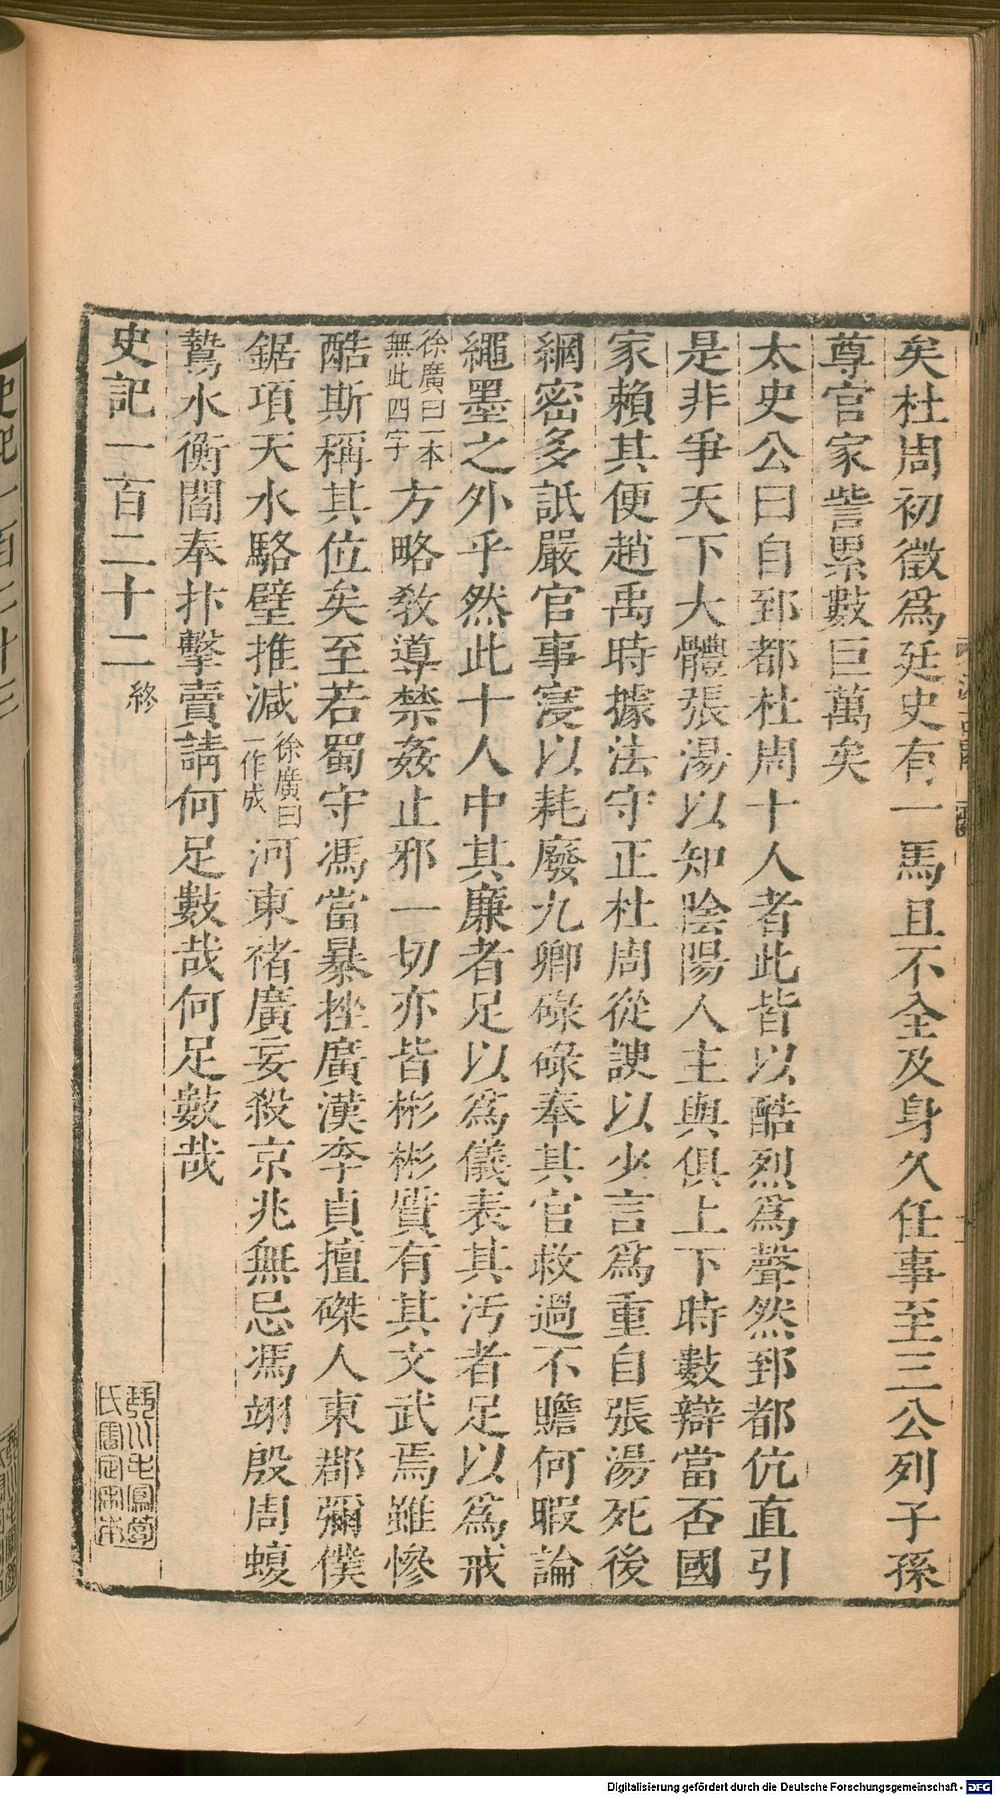 矣杜周初徵爲廷史有一馬且不全及身久任事至三公列子孫
尊官家訾累數巨萬矣
太史公曰自郅都杜周十人者此皆以酷烈爲聲然郅都伉直引
是非爭天下大體張湯以知陰陽人主與俱上下時數辯當否國
家賴其便趙禹時據法守正杜周從諛以少言爲重自張湯死後
網密多詆嚴官事寖以耗廢九卿碌碌奉其官救過不贍何暇論
繩墨之外乎然此十人中其廉者足以爲儀表其汚者足以爲戒
徐廣曰一本無此四字方略敎導禁姦止邪一切亦皆彬彬質有其文武焉雖慘
酷斯稱其位矣至若蜀守馮當暴挫廣漢李貞擅磔人東郡彌僕
鋸項天水駱璧推減徐廣曰一作成河東褚廣妄殺京兆無忌馮翊殷周蝮
鷙水衡閻奉扑擊賣請何足數哉何足數哉
史記一百二十二終
琴川毛鳳苞氏審定宋本
Digitalisierung gefördert durch die Deutsche Forschungsgemeinschaft - DFG